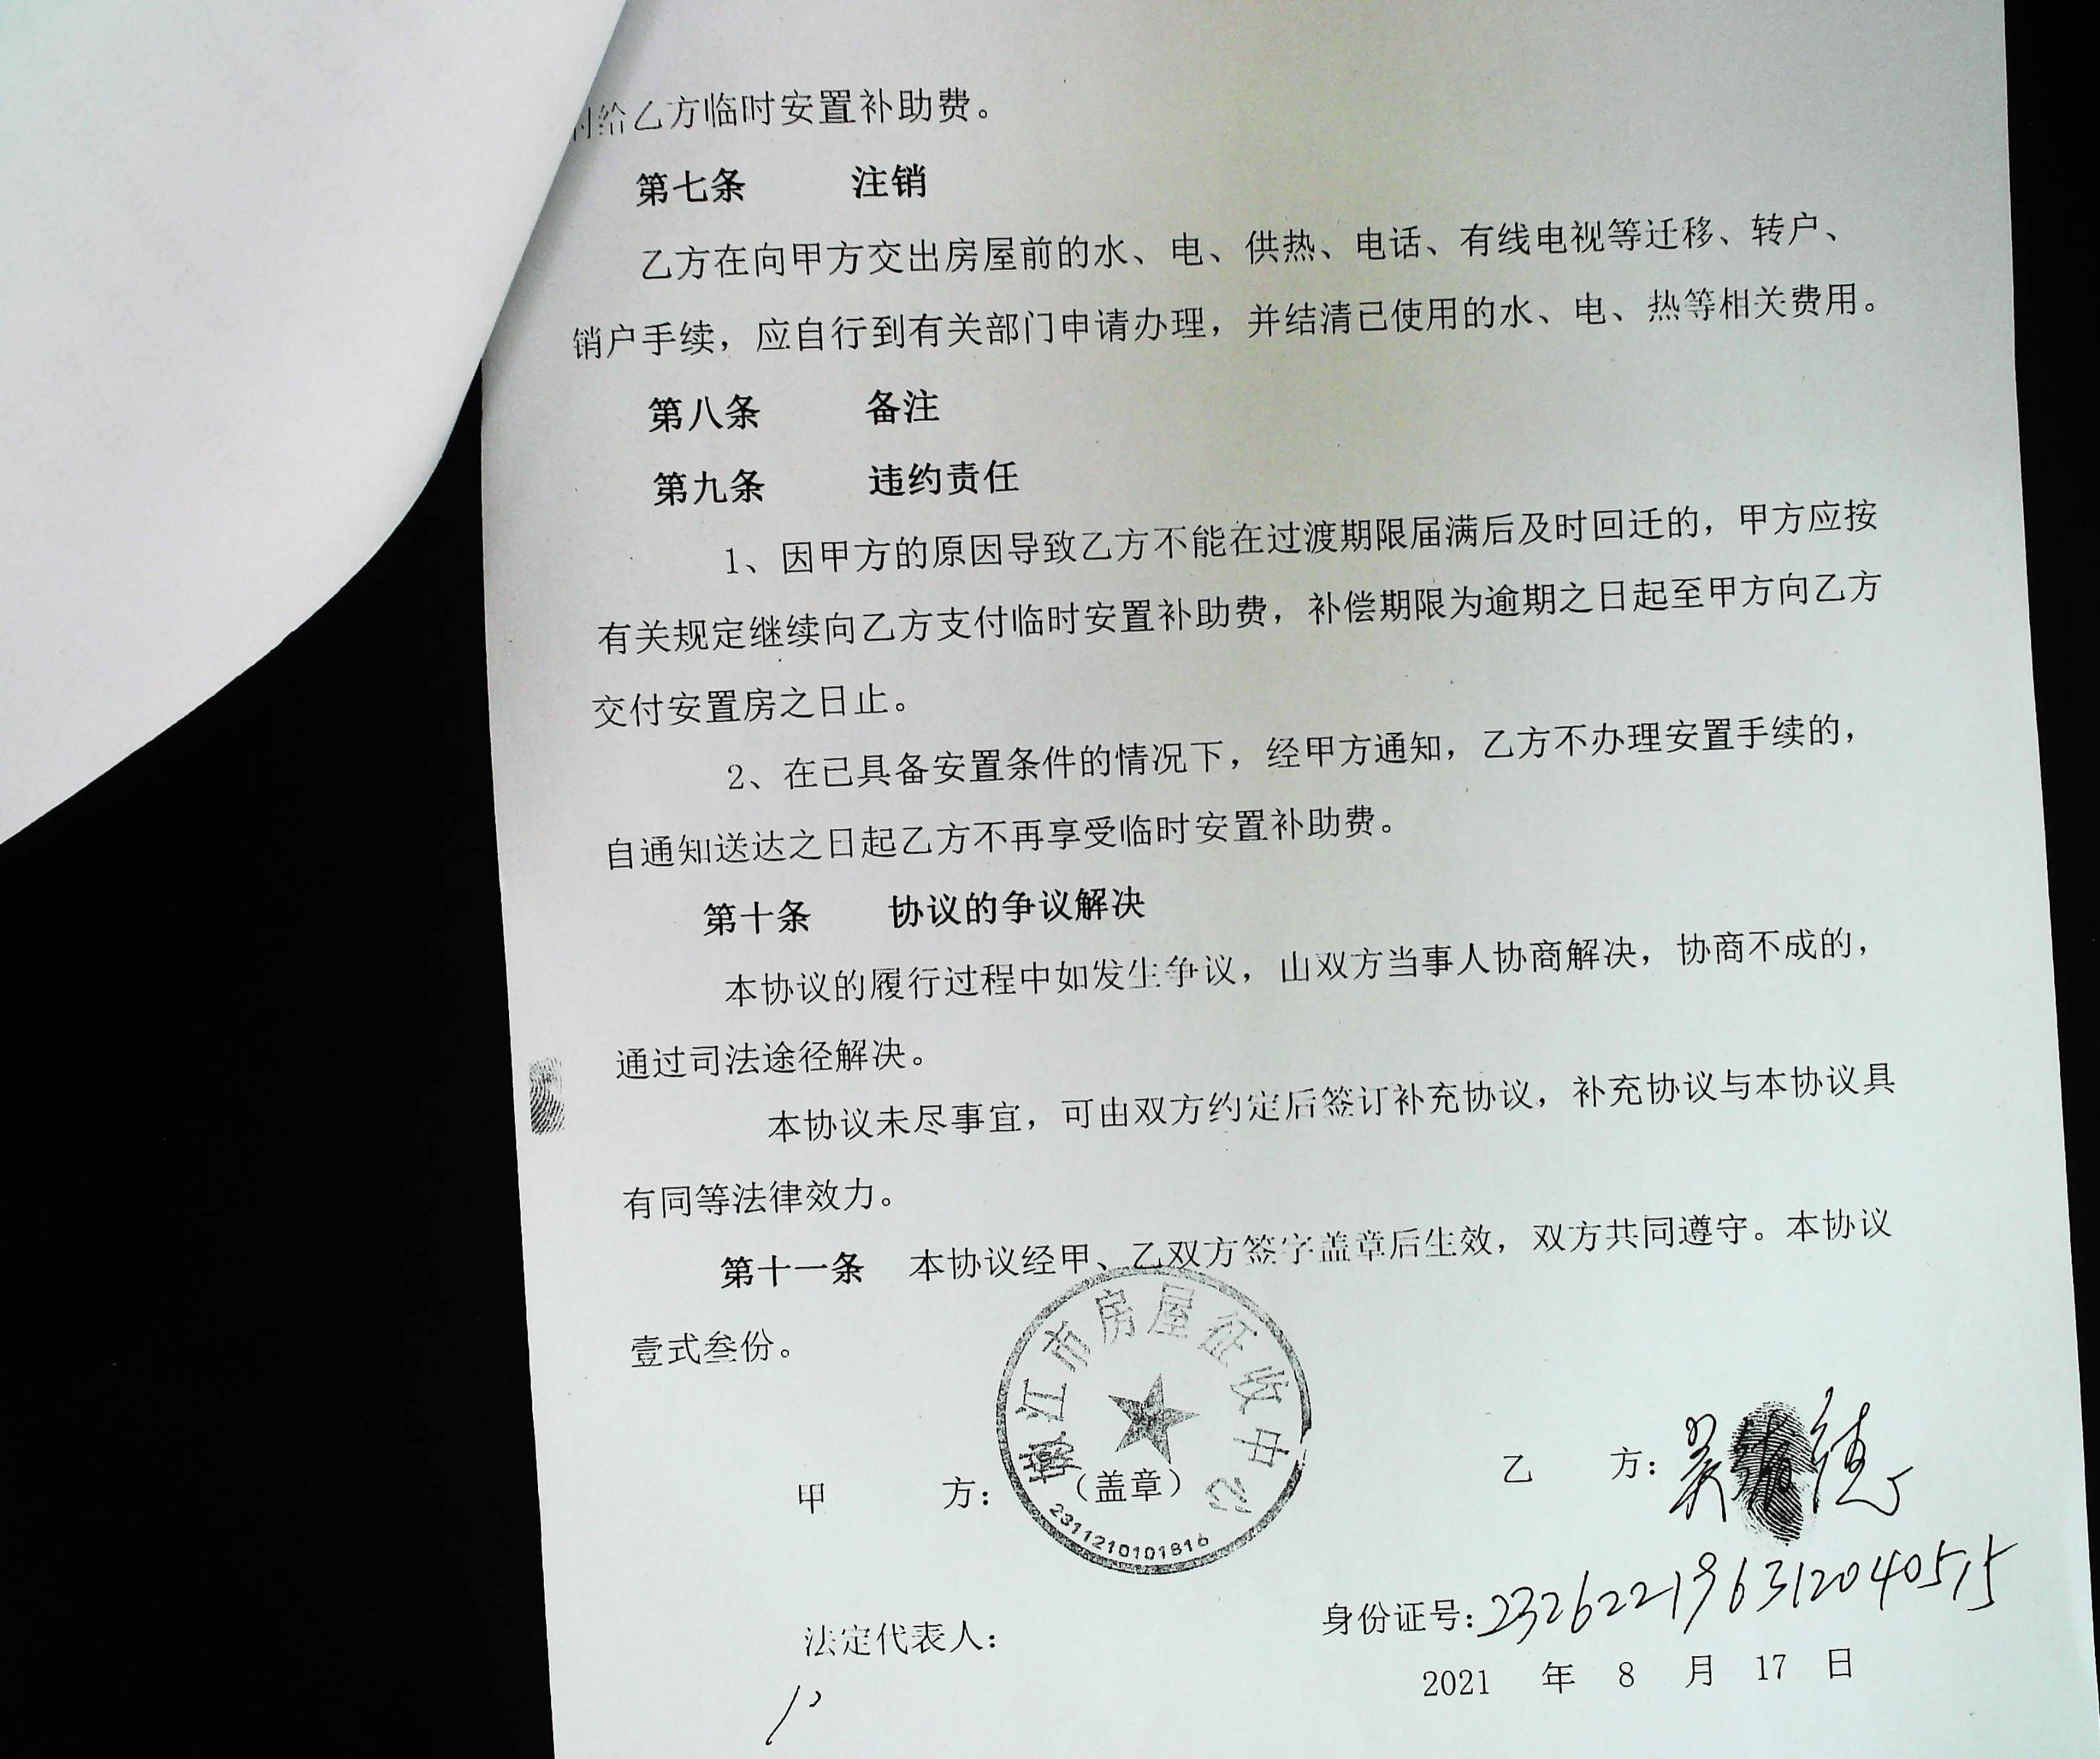 付给乙方临时安置补助费。
第七条 注销
乙方在向甲方交出房屋前的水、电、供热、电话、有线电视等迁移、转户、
销户手续，应自行到有关部门申请办理，并结清已使用的水、电、热等相关费用。
第八条 备注
第九条 违约责任
1、因甲方的原因导致乙方不能在过渡期限届满后及时回迁的，甲方应按
有关规定继续向乙方支付临时安置补助费，补偿期限为逾期之日起至甲方向乙方
交付安置房之日止。
2、在已具备安置条件的情况下，经甲方通知，乙方不办理安置手续的，
自通知送达之日起乙方不再享受临时安置补助费。
第十条 协议的争议解决
本协议的履行过程中如发生争议，由双方当事人协商解决，协商不成的，
通过司法途径解决。
本协议未尽事宜，可由双方约定后签订补充协议，补充协议与本协议具
有同等法律效力。
第十一条 本协议经甲、乙双方签字盖章后生效，双方共同遵守。本协议
壹式叁份。
嫩江市房屋征收中心
2311210101816
甲 方：（盖章）
乙 方：吴 德
法定代表人：
身份证号：232622196312040515
2021 年 8 月 17 日